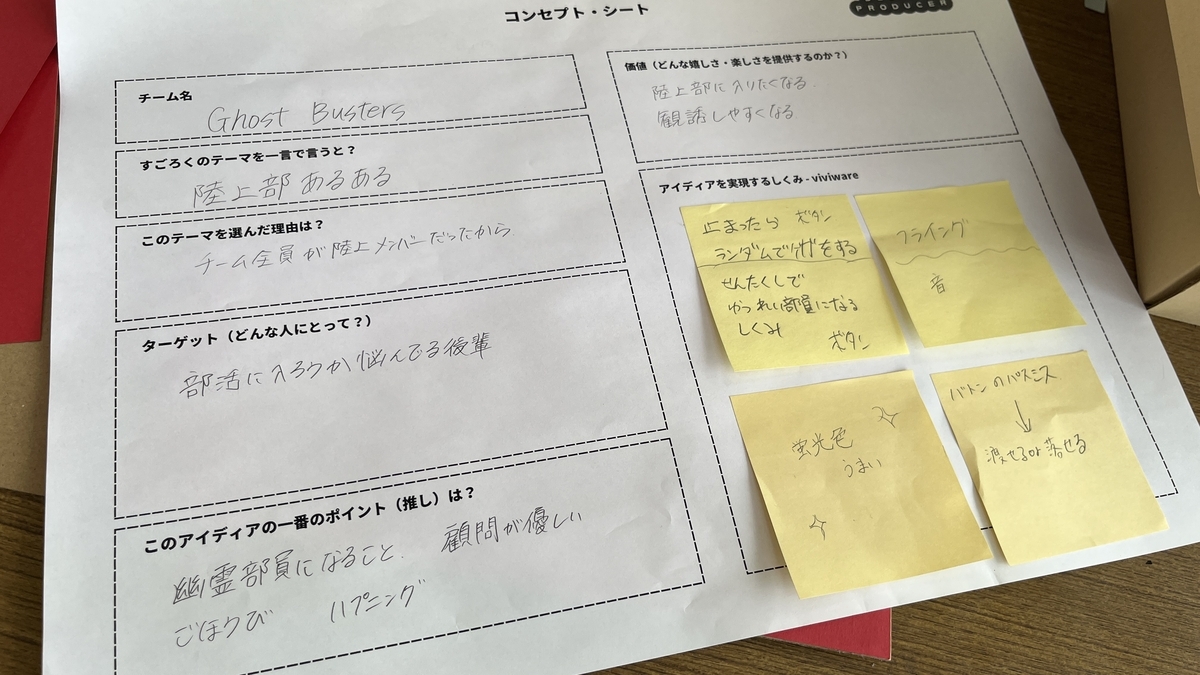 コンセプト・シート
PRODUCER
チーム名
Ghost Busters
すごろくのテーマを一言で言うと？
陸上部あるある
このテーマを選んだ理由は？
チーム全員が陸上メンバーだったから
ターゲット（どんな人にとって？）
部活に入ろうか悩んでる後輩
このアイディアの一番のポイント（推し）は？
幽霊部員になること. 顧問が優しい
ごほうび ハプニング
価値（どんな嬉しさ・楽しさを提供するのか？）
陸上部に入りたくなる.
観誘しやすくなる
アイディアを実現するしくみ - viviware
止まったら ボタン
ランダムでケガをする
せんたくしで
ゆうれい部員になる
しくみ
ボタン
フライング
音
蛍光色
うまい
バトンのパスミス
↓
渡せるor落せる